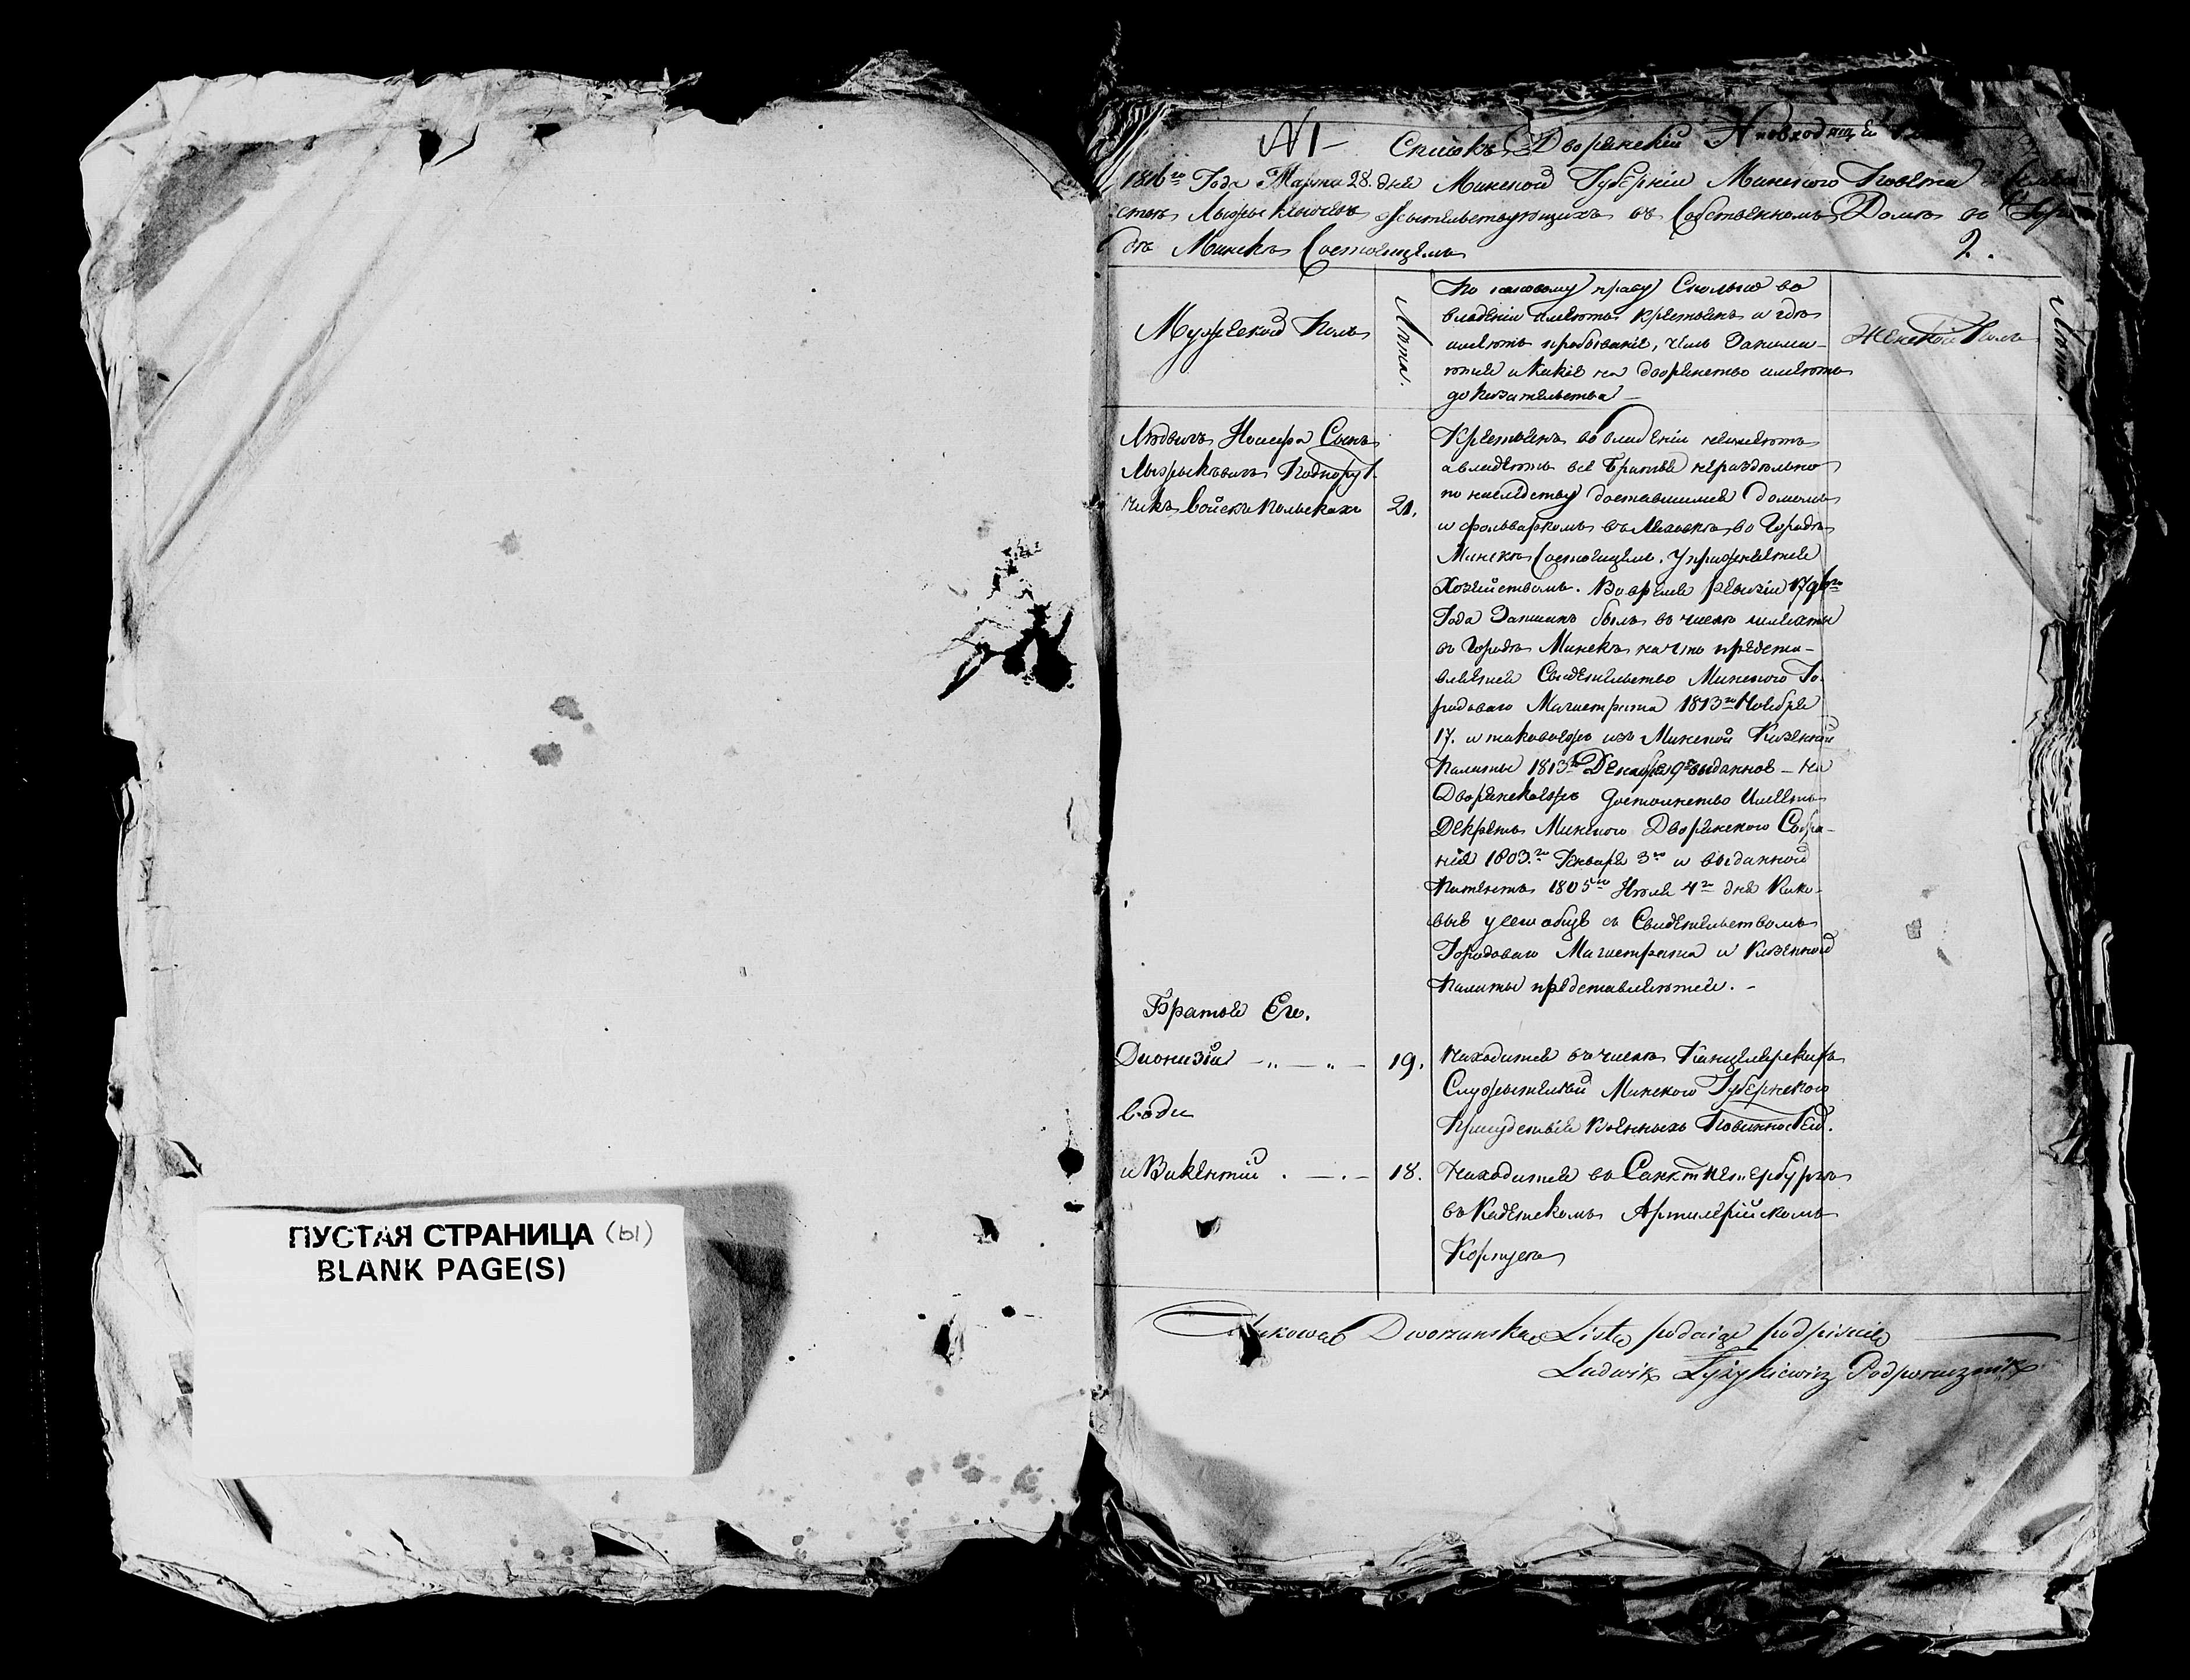 ПУСТАЯ СТРАНИЦА (ы)
BLANK PAGE(S)
№ 1 Списокъ Дворянскiй
1816го Года Марта 28. дня Минской Губернiи Минского Повета
жытельствующихъ въ Собственномъ Доме въ Горо
де Минскъ Состоящемъ
2.
Мужеской Полъ
Лета.
По какому праву Сколько во
владенiи имеютъ крестьянъ и где
имеютъ пребыванiе, чемъ Занима-
ются и Какiе на дворянство имеютъ
доказательства
Женской Полъ
Лета.
Людвигъ Iосифа Сынъ
Лыжыкевичъ Подпору
чикъ войскъ польскихъ
21.
Крестьянъ во владенiи неимеютъ
а владеютъ все Братья нераздельно
по наследству доставшимся домомъ
и фольваркомъ въ во Городе
Минске Состоящемъ. Упражняется
Хозяйствомъ. Во время ревизiи 179
Года Записанъ былъ въ числе шляхты
въ Городе Минске на что предста-
вляется Свидетельство Минского Го-
родового Магистрата 1813го Ноября
17. и таковоежъ изъ Минской Казенной
Палаты 1813го Декабря 9го выданное - На
Дворянскоежъ достоинство Имеетъ
Декретъ Минского Дворянского Собра-
нiя 1803.го Января 3го и выданной
Патентъ 1805го Iюля 4го дня Како-
выя обще съ Свидетельствомъ
Городового Магистрата и Казенной
Палаты представляются. -
Братья Его.
Дионизiй
19.
Находится въ числе Канцелярскихъ
Служытелей Минского Губернского
Присудствiя Военныхъ Повинностей.
и Викентiй
18.
Находится въ Санктпетербурге
въ Кадетскомъ Артилерiйскомъ
Корпусе
Dworzanska Lista podaiąc podpisuię
Ludwik Łyżykiewicz Podporucznik